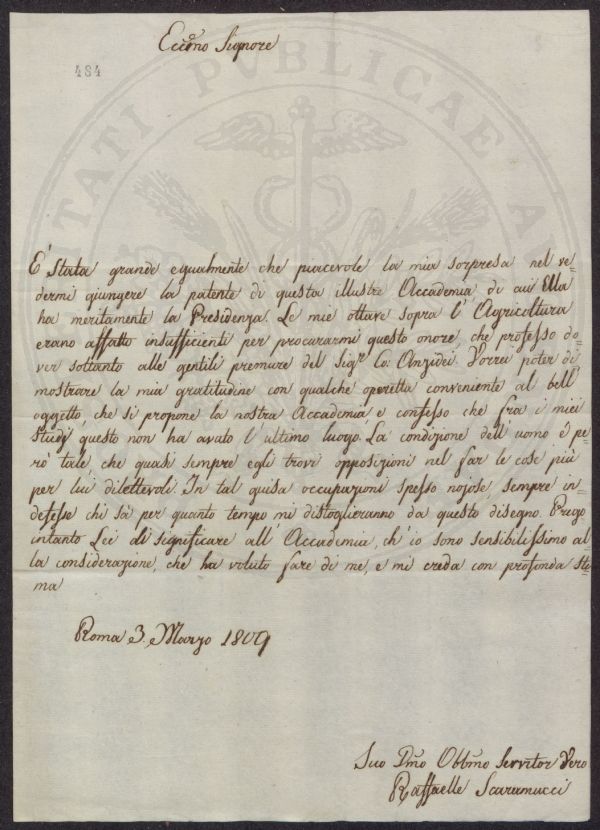 Eccmo Signore
484
TATI PVBLICAE AV
E' Stata grande egualmente che piacevole la mia sorpresa nel ve=
dermi giungere la patente di questa illustre Accademia, di cui Ella
ha meritamente la Presidenza. Le mie ottave sopra l'Agricoltura
erano affatto insufficienti per procurarmi questo onore, che professo do=
ver soltanto alle gentili premure del Sigr Co: Anzidei. Vorrei poter di=
mostrare la mia gratitudine con qualche operetta conveniente al bell'
oggetto, che si propone la nostra Accademia, e confesso che fra i miei
Studj questo non ha avuto l'ultimo luogo. La condizione dell'uomo è pe=
rò tale, che quasi sempre egli trovi opposizioni nel far le cose più
per lui dilettevoli. In tal guisa occupazioni spesso nojose, sempre in=
defesse chi sà per quanto tempo mi distoglieranno da questo disegno. Prego
intanto Lei di significare all'Accademia, ch'io sono sensibilissimo al=
la considerazione, che ha voluto fare di me, e mi creda con profonda sti=
ma
Roma 3. Marzo 1809
Suo Dmo Obbmo Servitor Vero
Raffaelle Scaramucci